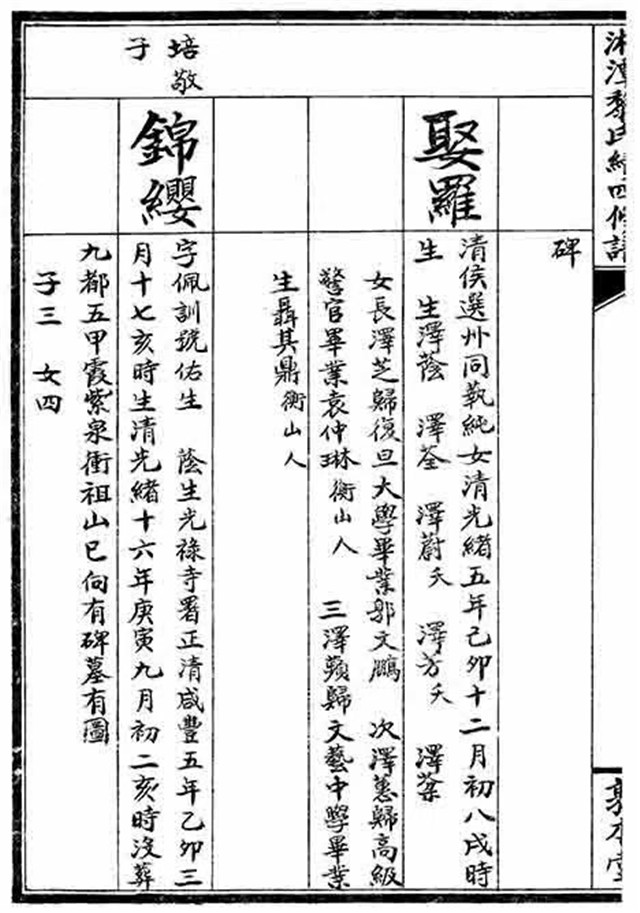 湘潭黎氏續四修譜
敦本堂
碑
娶羅
清侯選州同執純女清光緒五年己卯十二月初八戌時
生 生澤蔭 澤荃 澤蔚夭 澤芳夭 澤棨
女長澤芝歸復旦大學畢業郭文鵬 次澤蕙歸高級
警官畢業袁仲琳衡山人 三澤蘋歸文藝中學畢業
生聶其鼎衡山人
培敬
子
錦纓
字佩訓號佑生 蔭生光祿寺署正清咸豐五年乙卯三
月十七亥時生清光緒十六年庚寅九月初二亥時沒葬
九都五甲霞紫泉衝祖山巳向有碑墓有圖
子三 女四